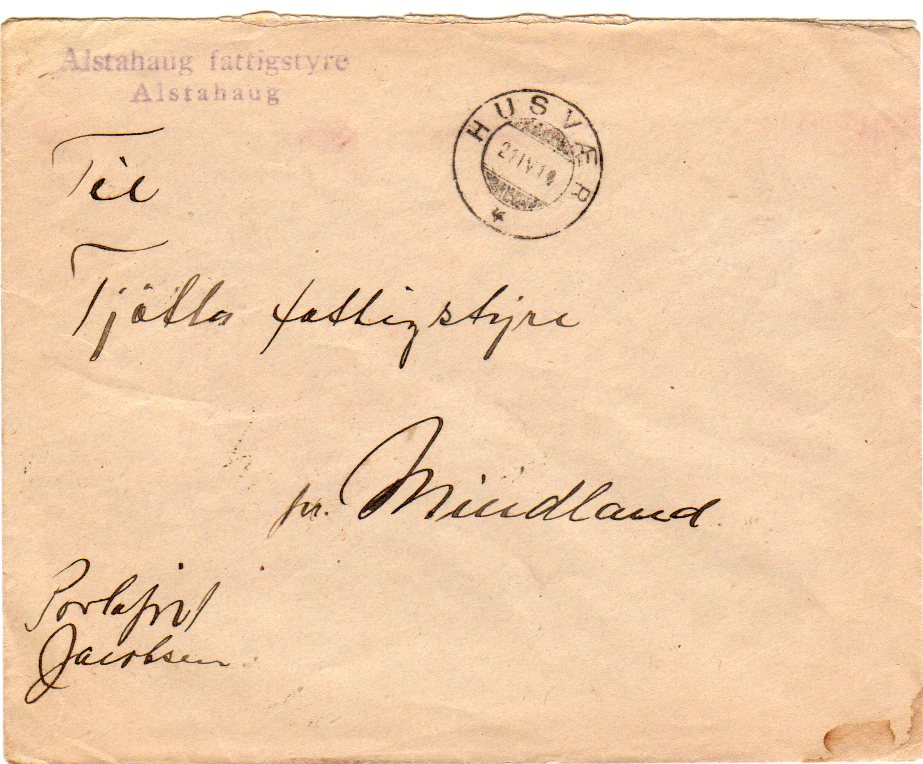 Alstahaug fattigstyre
Alstahaug
HUSVÆR
21 IV 1
Til
Tjötta fattigstyre
pr. Mindland
Portofrit
Jacobsen